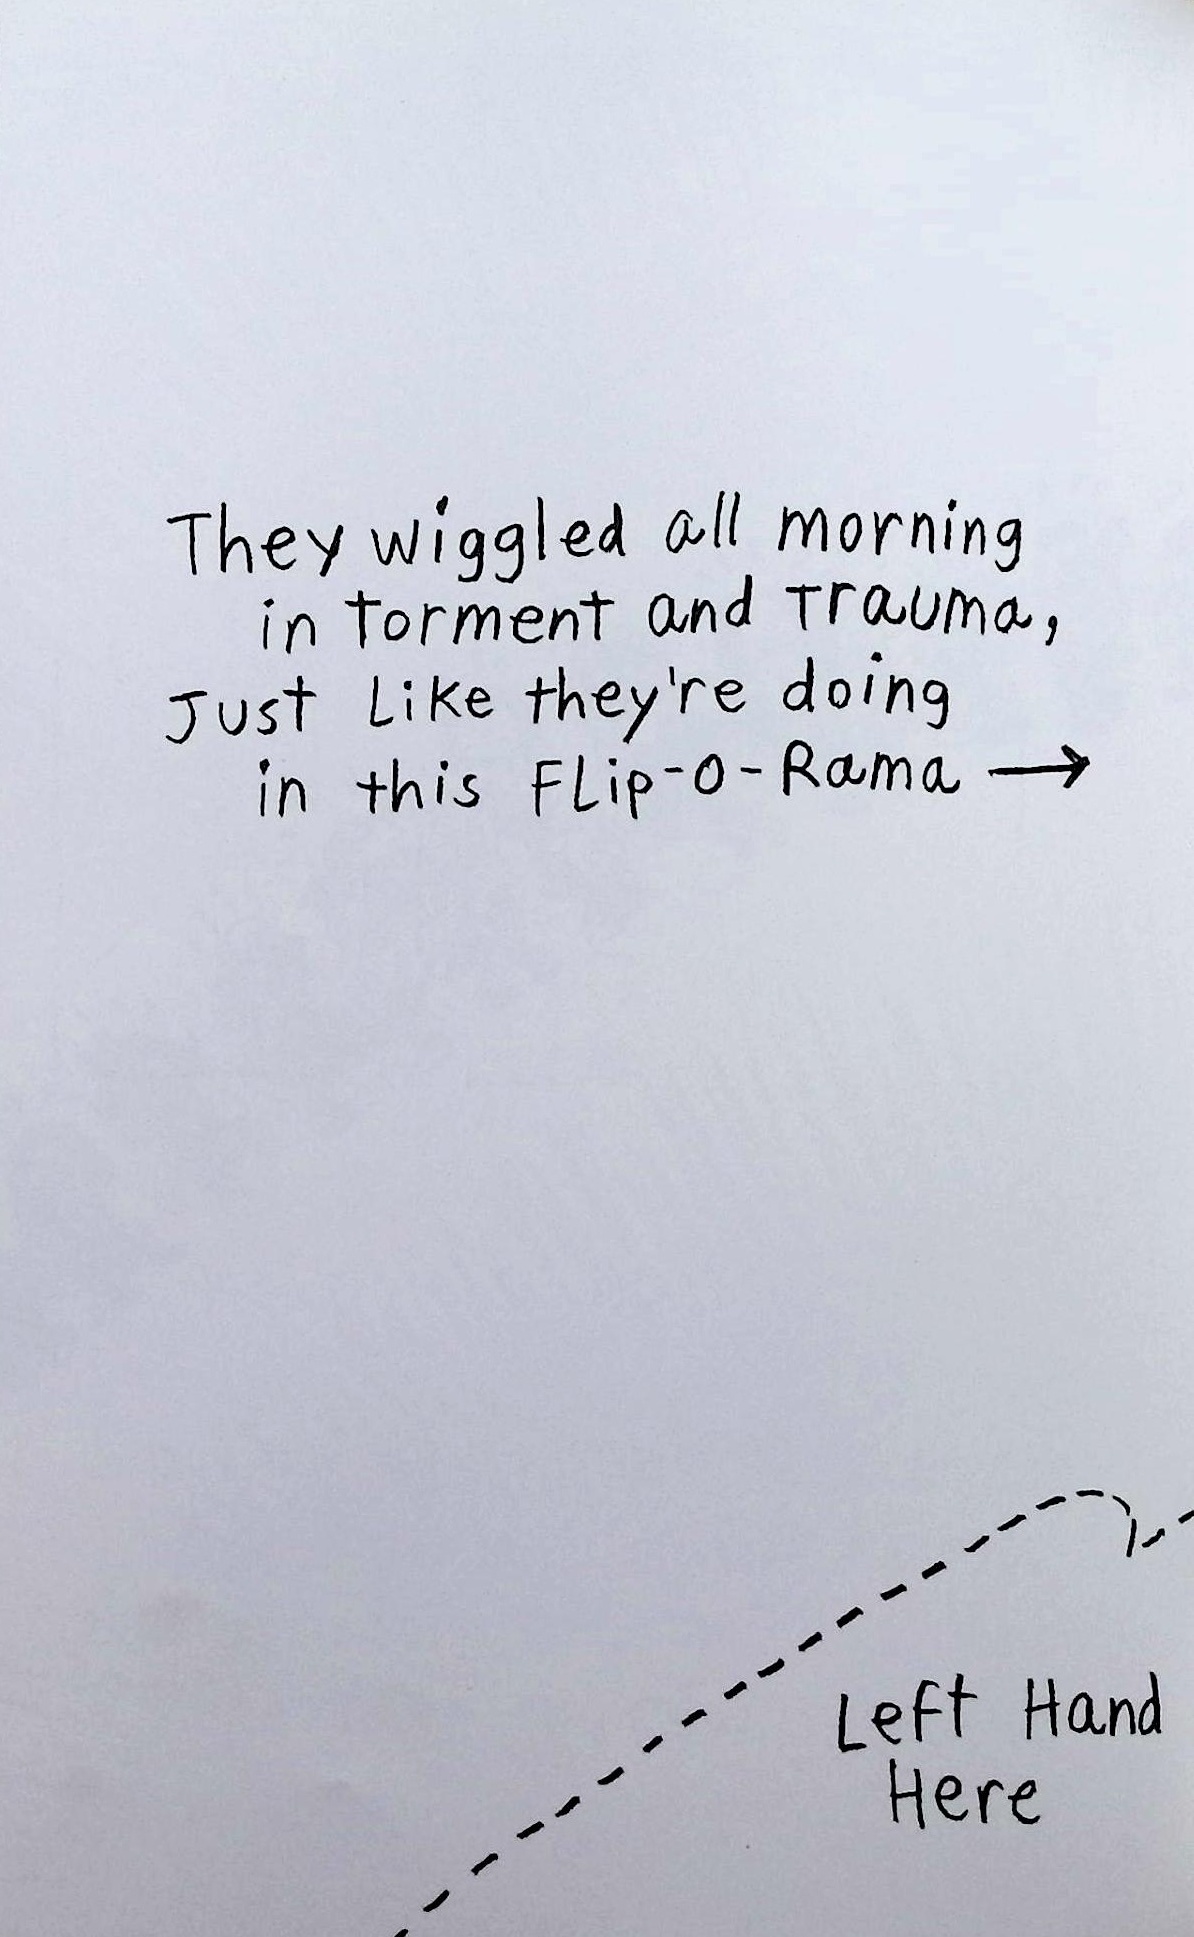 They wiggled all morning
in torment and Trauma,
Just Like they're doing
in this FLip-O-Rama →
Left Hand
Here